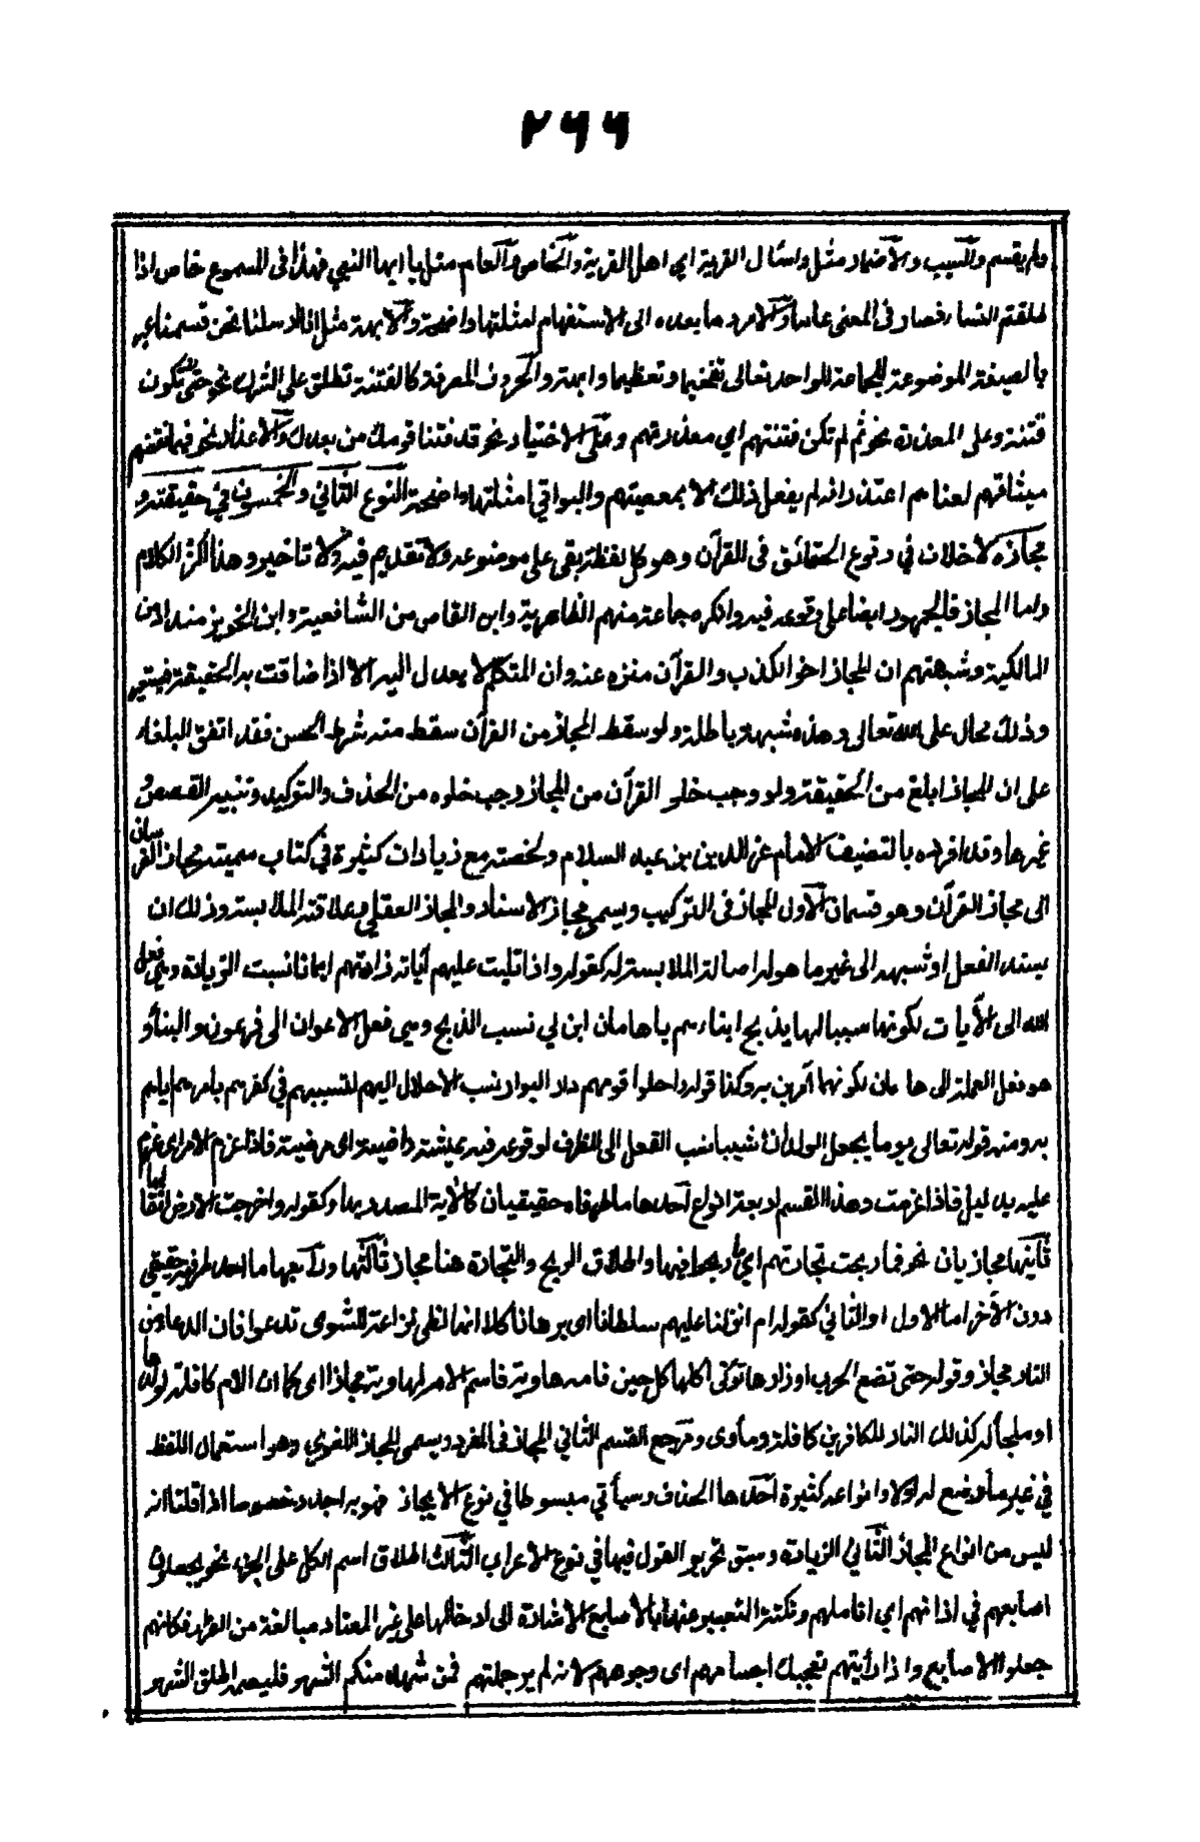 ٢٦٦
ولم يقسم والسبب والاضمار مثل واسأل القرية اي اهل القرية والخاص والعام مثل يا ايها النبي فهذا فى المسموع خاص اذا
طلقتم النساء فصار فى المعنى عاما والامر وما بعده الى الاستفهام امثلتها واضحة والابهة مثل انا ارسلنا نحن قسمنا عبر
بالصيغة الموضوعة للجماعة للواحد تعالى تفخيما وتعظيما وابهة والحروف المصرفة كالفتنة تطلق على الشرك نحو حتى لا تكون
فتنة وعلى المعذرة نحو ثم لم تكن فتنتهم اي معذرتهم وعلى الاختبار نحو قد فتنا قومك من بعدك والاعذار نحو فبما نقضهم
ميثاقهم لعناهم اعتذر انه لم يفعل ذلك الا بمعصيتهم والبواقي امثلتها واضحة النوع الثاني والخمسون في حقيقته و
مجازه لا خلاف في وقوع الحقائق فى القرآن وهو كل لفظ بقى على موضوعه ولا تقديم فيه ولا تاخير وهذا اكثر الكلام
واما المجاز فالجمهور ايضا على وقوعه فيه وانكره جماعة منهم الظاهرية وابن القاص من الشافعية وابن الخويز منداد من
المالكية وشبهتهم ان المجاز اخو الكذب والقرآن منزه عنه وان المتكلم لا يعدل اليه الا اذا ضاقت به الحقيقة فيستعير
وذلك محال على الله تعالى وهذه شبهة باطلة ولو سقط المجاز من القرآن سقط منه شطر الحسن فقد اتفق البلغاء
على ان المجاز ابلغ من الحقيقة ولو وجب خلو القرآن من المجاز وجب خلوه من الحذف والتوكيد وتثنية القصص و
غيرها وقد افرده بالتصنيف الامام عز الدين بن عبد السلام ولخصته مع زيادات كثيرة في كتاب سميته مجاز الفرسان
الى مجاز القرآن وهو قسمان الاول المجاز فى التركيب ويسمى مجاز الاسناد والمجاز العقلي وعلاقته الملابسة وذلك ان
يسند الفعل او شبهه الى غير ما هو له اصالة لملابسته له كقوله واذا تليت عليهم آياته زادتهم ايمانا نسبت الزيادة وهي فعل
الله الى الآيات لكونها سببا لها يذبح ابناءهم يا هامان ابن لي نسب الذبح وهي فعل الاعوان الى فرعون والبناء و
هو فعل العملة الى هامان لكونهما آمرين به وكذا قوله واحلوا قومهم دار البوار نسب الاحلال اليهم لتسببهم في كفرهم بامرهم اياهم
به ومنه قوله تعالى يوما يجعل الولدان شيبا نسب الفعل الى الظرف لوقوعه فيه عيشة راضية اى مرضية فاذا عزم الامر اى عزم
عليه بدليل فاذا عزمت وهذا القسم اربعة انواع احدها ما طرفاه حقيقيان كالآية المصدر بها وكقوله واخرجت الارض اثقالها
ثانيها مجازيان نحو فما ربحت تجارتهم اي ما ربحوا فيها واطلاق الربح والتجارة هنا مجاز ثالثها ورابعها ما احد طرفيه حقيقي
دون الآخر اما الاول او الثاني كقوله ام انزلنا عليهم سلطانا اى برهانا كلا انها لظى نزاعة للشوى تدعوا فان الدعاء من
النار مجاز وقوله حتى تضع الحرب اوزارها تؤتى اكلها كل حين فامه هاوية فاسم الام الهاوية مجاز اى كما ان الام كافلة لولدها
او ملجأ له كذلك النار للكافرين كافلة ومأوى ومرجع القسم الثاني المجاز فى المفرد ويسمى المجاز اللغوي وهو استعمال اللفظ
في غير ما وضع له اولا وانواعه كثيرة احدها الحذف وسيأتي مبسوطا في نوع الايجاز فهو به اجدر خصوصا اذا قلنا انه
ليس من انواع المجاز الثاني الزيادة وسبق تحرير القول فيها في نوع الاعراب الثالث اطلاق اسم الكل على الجزء نحو يجعلون
اصابعهم في اذانهم اي اناملهم ونكتة التعبير عنها بالاصابع الاشارة الى ادخالها على غير المعتاد مبالغة من الفرار فكانهم
جعلوا الاصابع واذا رأيتهم تعجبك اجسامهم اى وجوههم لانه لم ير جملتهم فمن شهد منكم الشهر فليصمه اطلق الشهر